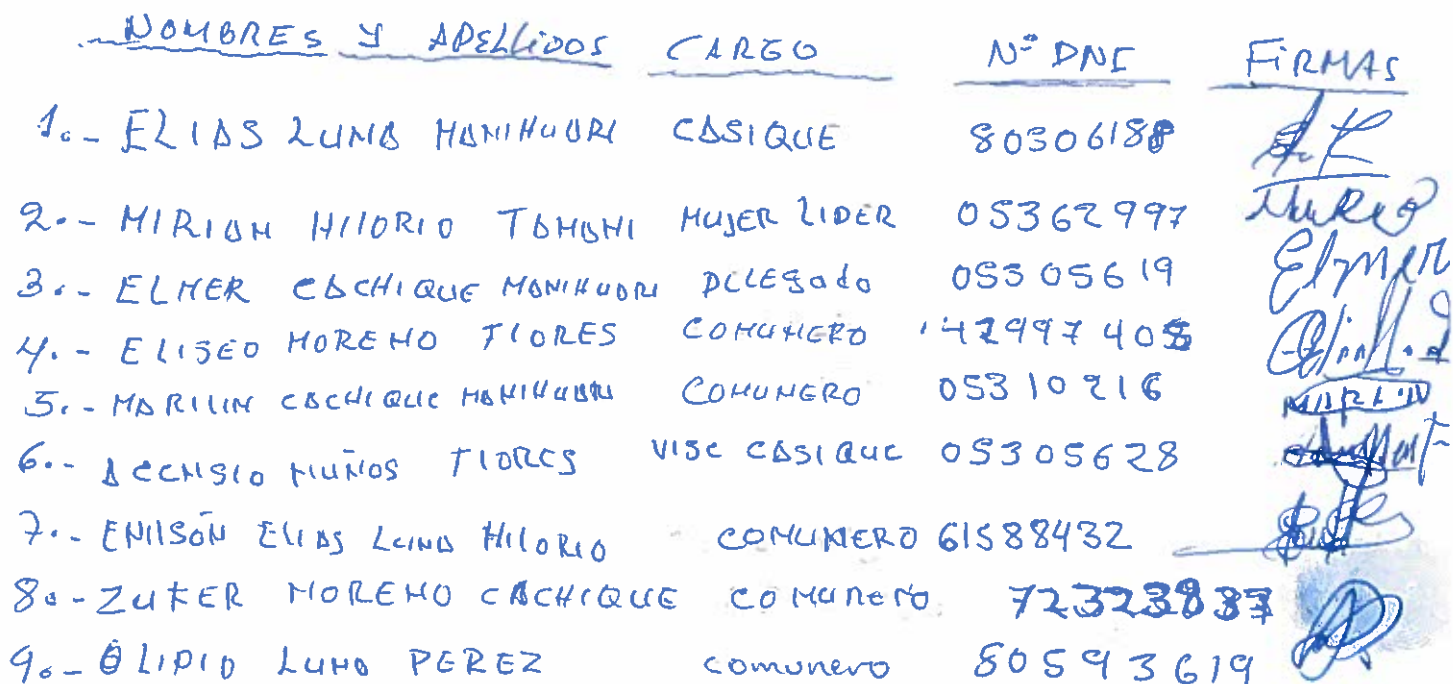 NOMBRES Y APELLIDOS CARGO Nº DNI FIRMAS
1.- ELIAS LUNA MANIHUARI CASIQUE 80306188
2.- MIRIAM HILORIO TAMANI MUJER LIDER 05362997
3.- ELMER CACHIQUE MANIHUARI DELEGADO 05305619 Elmer
4.- ELISEO MORENO FLORES COMUNERO 42997405
5.- MARILIN CACHIQUE MANIHUARI COMUNERO 05310216 MARLIN
6.- ACENSIO MUÑOS FLORES VISE CASIQUE 05305628
7.- ENILSON ELIAS LUNA HILORIO COMUNERO 61588432
8.- ZUKER MORENO CACHIQUE COMUNERO 72323837
9.- OLIPIO LUNA PEREZ comunero 80593619